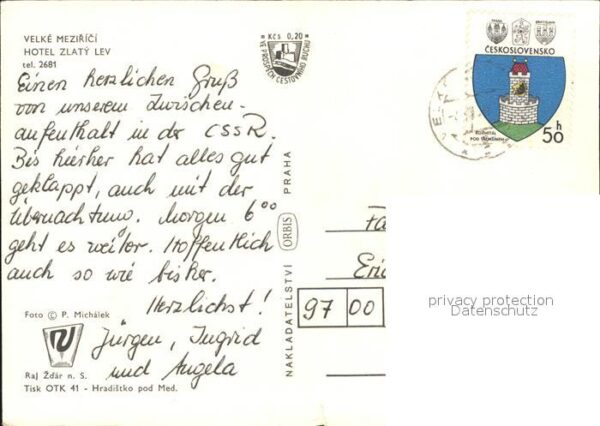 VELKÉ MEZIŘÍČÍ
HOTEL ZLATÝ LEV
tel. 2681
Einen herzlichen Gruß
von unserem Zwischen-
aufenthalt in der CSSR.
Bis hierher hat alles gut
geklappt, auch mit der
Übernachtung. Morgen 6⁰⁰
geht es weiter. Hoffentlich
auch so wie bisher.
Herzlichst!
Jürgen, Ingrid
und Angela
Foto © P. Michálek
Raj Žďár n. S.
Tisk OTK 41 - Hradištko pod Med.
Kčs 0,20
VE PROSPĚCH CESTOVNÍHO RUCHU
NAKLADATELSTVÍ ORBIS PRAHA
PRAHA
BRATISLAVA
ČESKOSLOVENSKO
50 h
Fa
Eric
97 00
privacy protection
Datenschutz